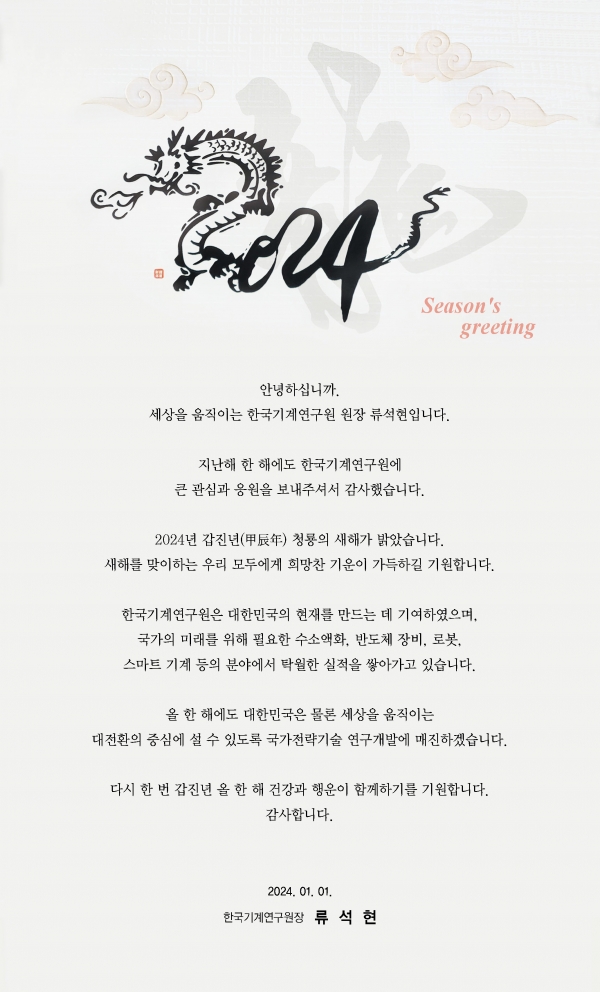 龍
2024
Season's
greeting
안녕하십니까.
세상을 움직이는 한국기계연구원 원장 류석현입니다.
지난해 한 해에도 한국기계연구원에
큰 관심과 응원을 보내주셔서 감사했습니다.
2024년 갑진년(甲辰年) 청룡의 새해가 밝았습니다.
새해를 맞이하는 우리 모두에게 희망찬 기운이 가득하길 기원합니다.
한국기계연구원은 대한민국의 현재를 만드는 데 기여하였으며,
국가의 미래를 위해 필요한 수소액화, 반도체 장비, 로봇,
스마트 기계 등의 분야에서 탁월한 실적을 쌓아가고 있습니다.
올 한 해에도 대한민국은 물론 세상을 움직이는
대전환의 중심에 설 수 있도록 국가전략기술 연구개발에 매진하겠습니다.
다시 한 번 갑진년 올 한 해 건강과 행운이 함께하기를 기원합니다.
감사합니다.
2024. 01. 01.
한국기계연구원장 류 석 현